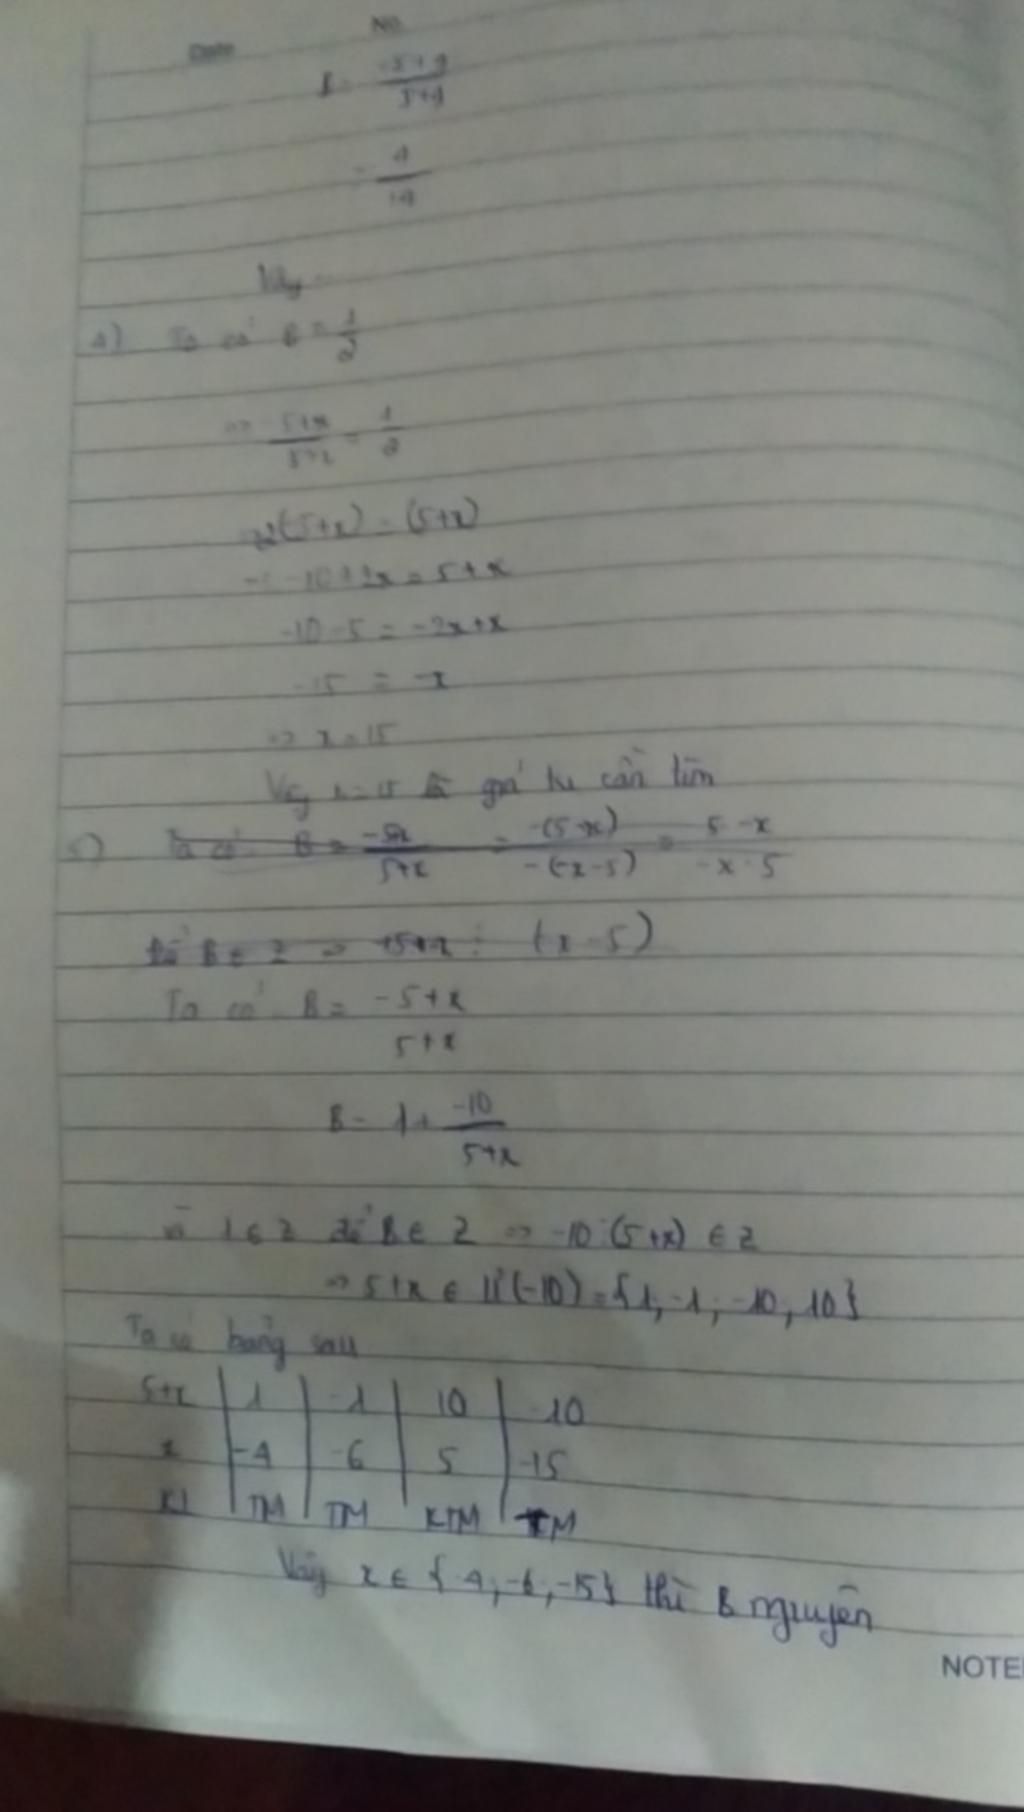 Date No.
B = -5+9 / 5+9
= 4 / 14
Vậy
Ta có B = 1/2
=> -5+x / 5+x = 1/2
2(-5+x) = (5+x)
-10+2x = 5+x
-10-5 = -2x+x
-15 = -x
=> x = 15
Vậy x = 15 là giá trị cần tìm
c) Ta có B = -5x / 5+x = -(5-x) / -(-x-5) = 5-x / -x-5
để B ∈ Z => +5+x ⋮ (-x-5)
Ta có B = -5+x / 5+x
B = 1+ -10 / 5+x
vì 1 ∈ Z để B ∈ Z => -10 : (5+x) ∈ Z
=> 5+x ∈ Ư(-10) = {1; -1; -10, 10}
Ta có bảng sau
5+x | 1 | -1 | 10 | -10
x | -4 | -6 | 5 | -15
KL | TM | TM | KTM | TM
Vậy x ∈ {-4, -6, -15} thì B nguyên
NOTE